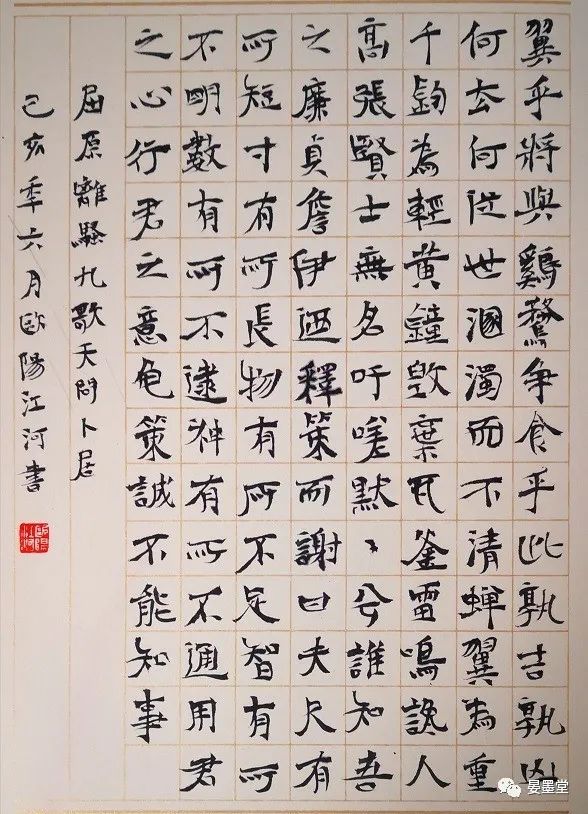 翼乎將與鷄鶩爭食乎此孰吉孰凶
何去何從世溷濁而不清蝉翼為重
千鈞為輕黃鐘毀棄瓦釜雷鳴讒人
高張賢士無名吁嗟默〻兮誰知吾
之廉貞詹伊迺釋策而謝曰夫尺有
所短寸有所長物有所不足智有所
不明數有所不逮神有所不通用君
之心行君之意龟策誠不能知事
屈原離騷九歌天問卜居
己亥年六月歐陽江河書
歐陽江河
晏墨堂